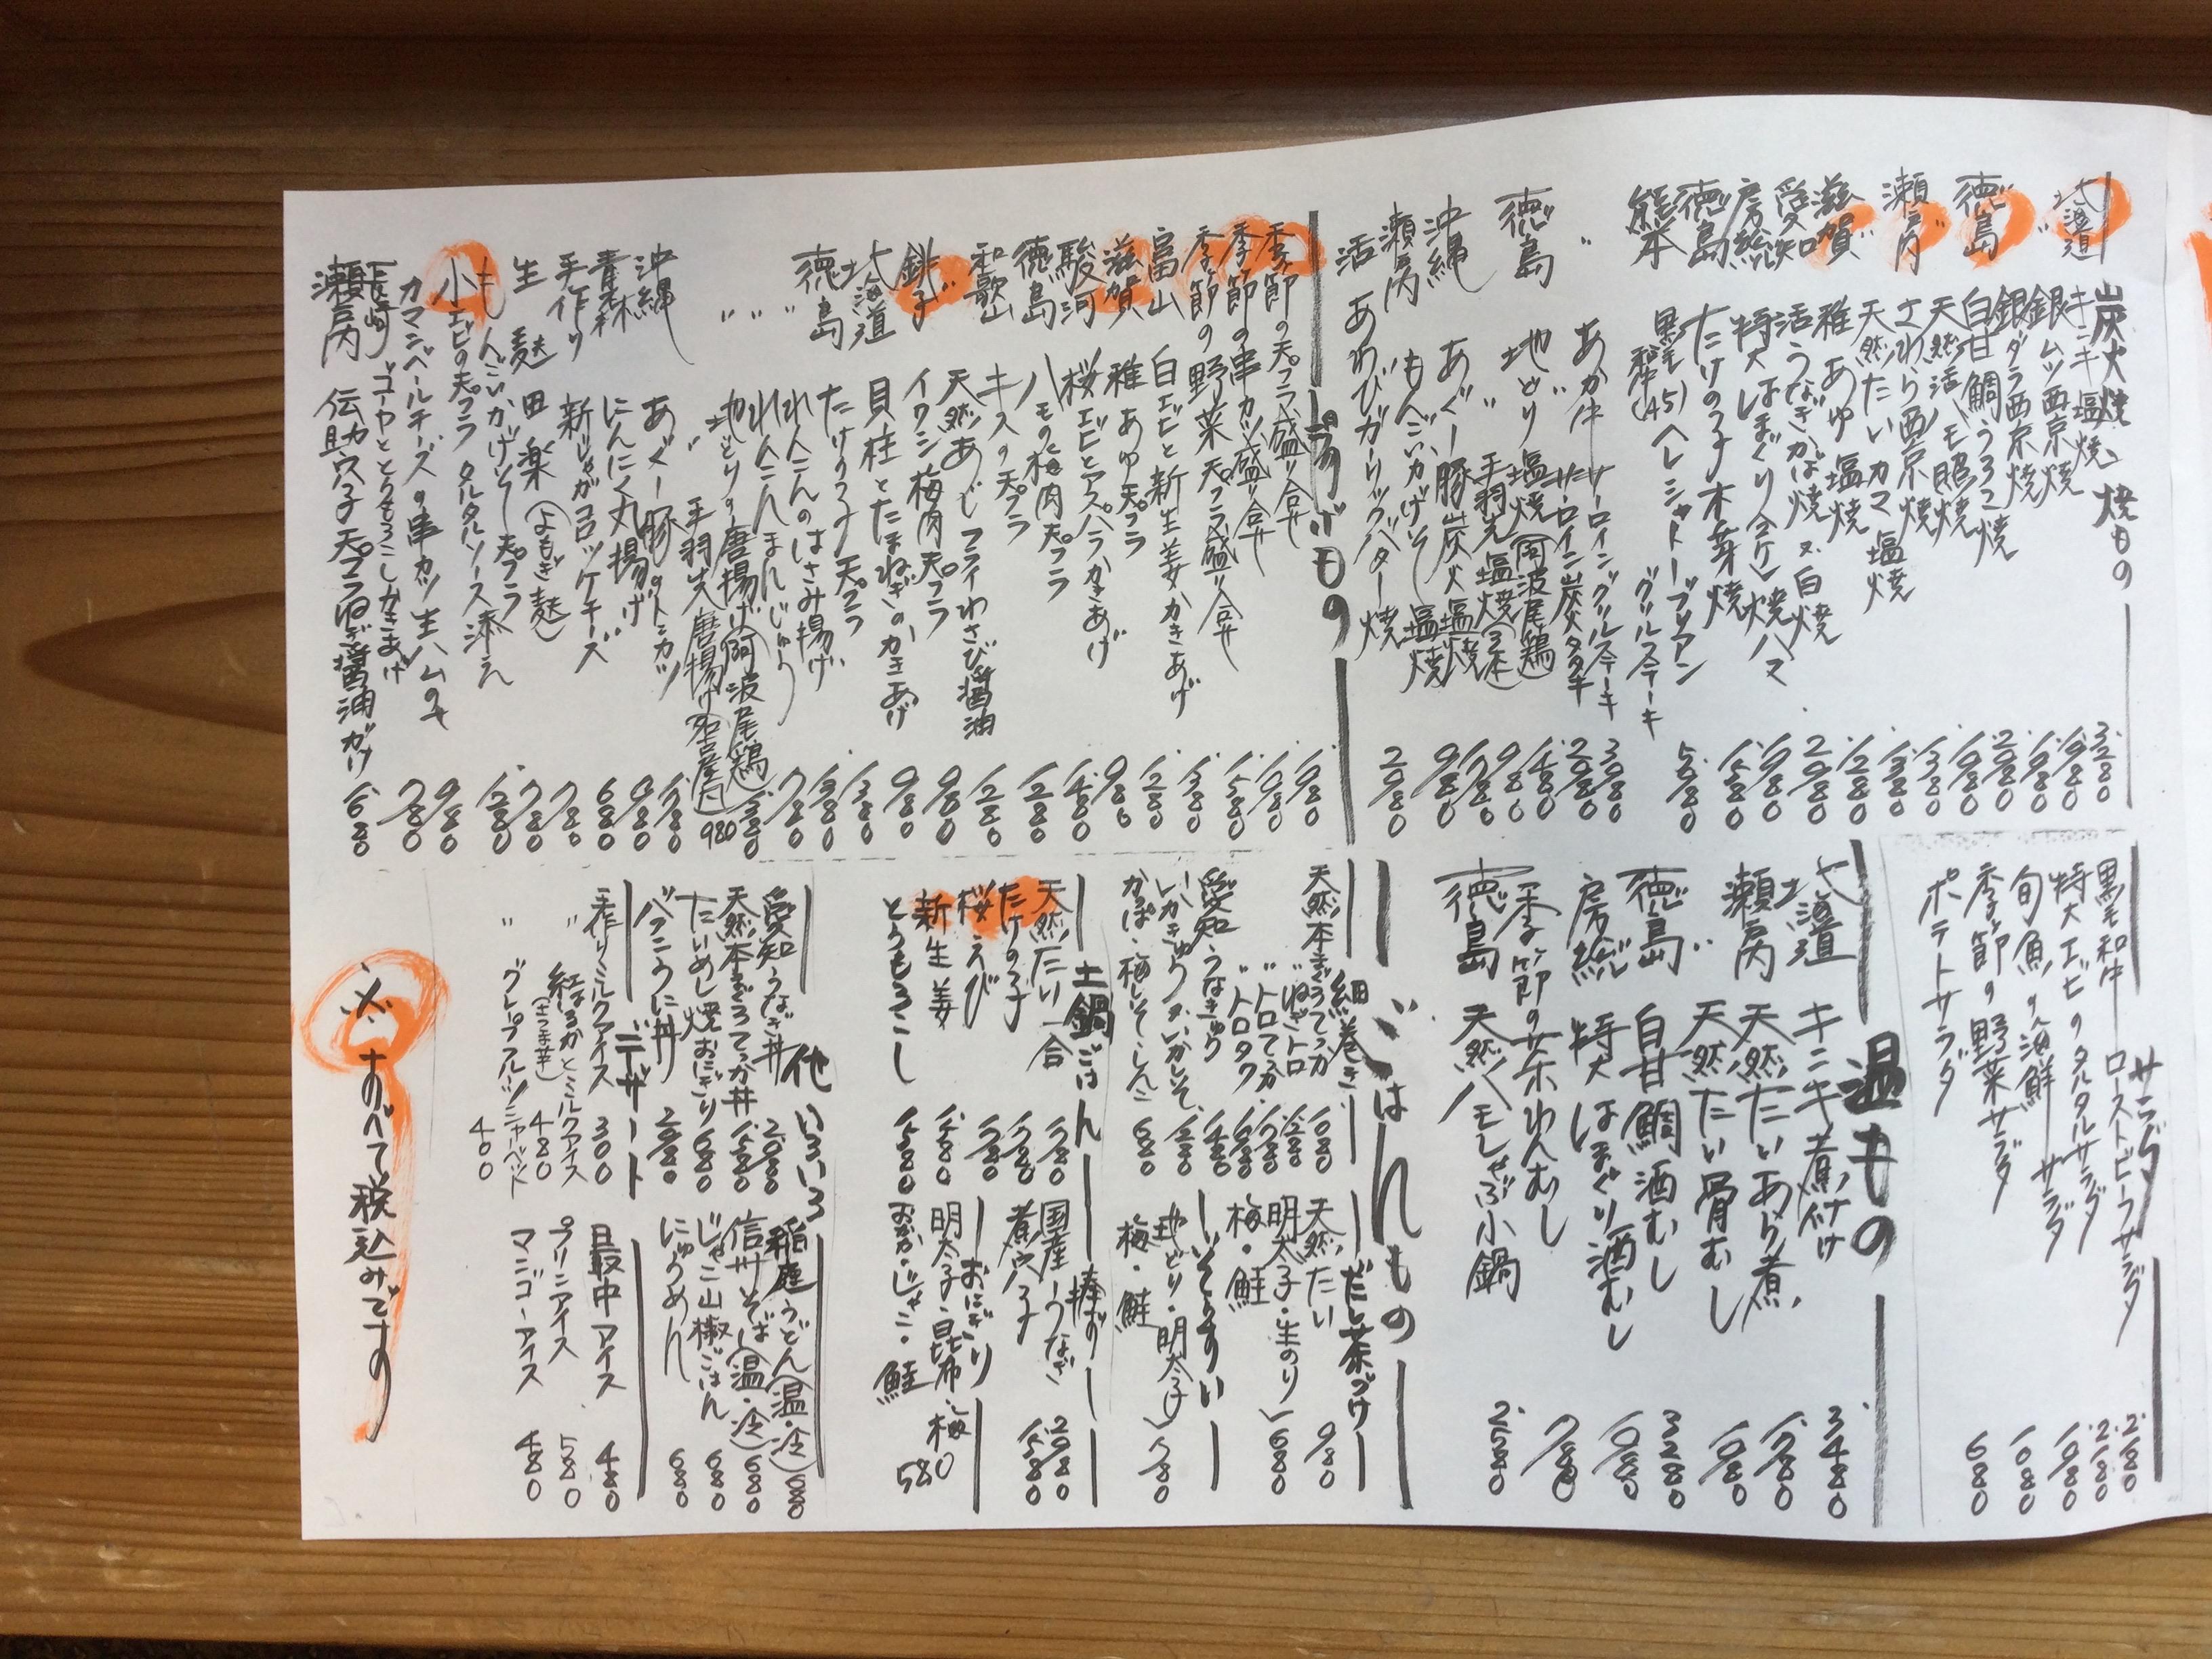 炭火焼・焼もの
北海道 キンキ塩焼 3.280
〃 銀ムツ西京焼 1.980
銀ダラ西京焼 1.980
徳島 白甘鯛うろこ焼 2.080
〃 天然活ハモ照焼 1.980
瀬戸内 さわら西京焼 1.380
〃 天然たいカマ塩焼 1.380
滋賀 稚あゆ塩焼 1.280
愛知 活うなぎかば焼又白焼 2.980
房総 特大はまぐり焼 1.980
徳島 たけの子木芽焼 1.580
熊本 黒毛和牛(A5)ヘレシャトーブリアン
グリルステーキ 5.980
〃 あか牛サーロイングリルステーキ 3.080
サーロイン炭火タタキ 2.080
徳島 地どり塩焼(阿波尾鶏) 1.480
〃 手羽先塩焼(3本) 980
沖縄 あぐー豚炭火塩焼 1.780
瀬戸内 もんごいかげそ塩焼 980
活 あわびガーリックバター焼 2.980
揚げもの
季節の天プラ盛り合せ 1.980
季節の串カツ盛り合せ 1.980
季節の野菜天プラ盛り合せ 1.580
富山 白エビと新生姜かきあげ 1.380
滋賀 稚あゆ天プラ 1.280
駿河 桜エビとアスパラかきあげ 980
徳島 ハモの梅肉天プラ 1.480
和歌山 キスの天プラ 1.280
天然あじフライわさび醤油 1.280
銚子 イワシ梅肉天プラ 980
北海道 貝柱とたまねぎのかきあげ 980
徳島 たけの子天プラ 1.380
〃 れんこんのはさみ揚げ 1.380
〃 れんこんまんじゅう 780
〃 地どりの唐揚げ(阿波尾鶏) 1.380
〃 手羽先唐揚げ(名古屋風) 980
沖縄 あぐー豚のトンカツ 1.780
青森 にんにく丸揚げ 980
手作り 新じゃがコロッケチーズ 680
生麩田楽(よもぎ麩) 780
もんごいかげそ天プラ 780
小エビの天プラ タルタルソース添え 1.280
カマンベールチーズの串カツ生ハムのせ 980
長崎 ゴーヤととうもろこしかきあげ 780
瀬戸内 伝助穴子天プラねぎ醤油がけ 1.680
サラダ
黒毛和牛ローストビーフサラダ 2.180
特大エビのタルタルサラダ 2.180
旬魚の海鮮サラダ 1.980
季節の野菜サラダ 1.080
ポテトサラダ 680
温もの
北海道 キンキ煮付け 3.480
瀬戸内 天然たいあら煮 1.780
〃 天然たい骨むし 1.080
徳島 白甘鯛酒むし 3.280
房総 特大はまぐり酒むし 1.080
季節の茶わんむし 780
徳島 天然ハモしゃぶ小鍋 2.580
ごはんもの
細巻き
天然本まぐろてっか 1.080
〃 ねぎトロ 1.280
〃 トロてっか 1.780
〃 トロタク 1.680
愛知 うなきゅう 1.480
いかきゅう・いかしそ 1.280
かっぱ・梅しそ・しんこ 680
だし茶づけ
天然たい 980
明太子・生のり
梅・鮭 680
いぞうすい
地どり・明太子
梅・鮭 780
土鍋ごはん
天然たい 一合 1.780
たけの子 1.780
桜えび 1.780
新生姜 1.480
とうもろこし 1.580
棒ずし
国産うなぎ 2.080
煮穴子 1.580
おにぎり
明太子・昆布・梅
おかか・じゃこ・鮭 580
他いろいろ
愛知 うなぎ丼 2.080
天然本まぐろてっか丼 1.580
たいめし焼おにぎり 680
バフンうに丼 2.080
稲庭うどん(温・冷) 680
信州そば(温・冷) 680
じゃこ山椒ごはん 680
にゅうめん 680
デザート
手作りミルクアイス 300
〃 紅はるかとミルクアイス
(さつま芋) 480
〃 グレープフルーツシャーベット 400
最中アイス 480
プリンアイス 580
マンゴーアイス 480
※すべて税込みです